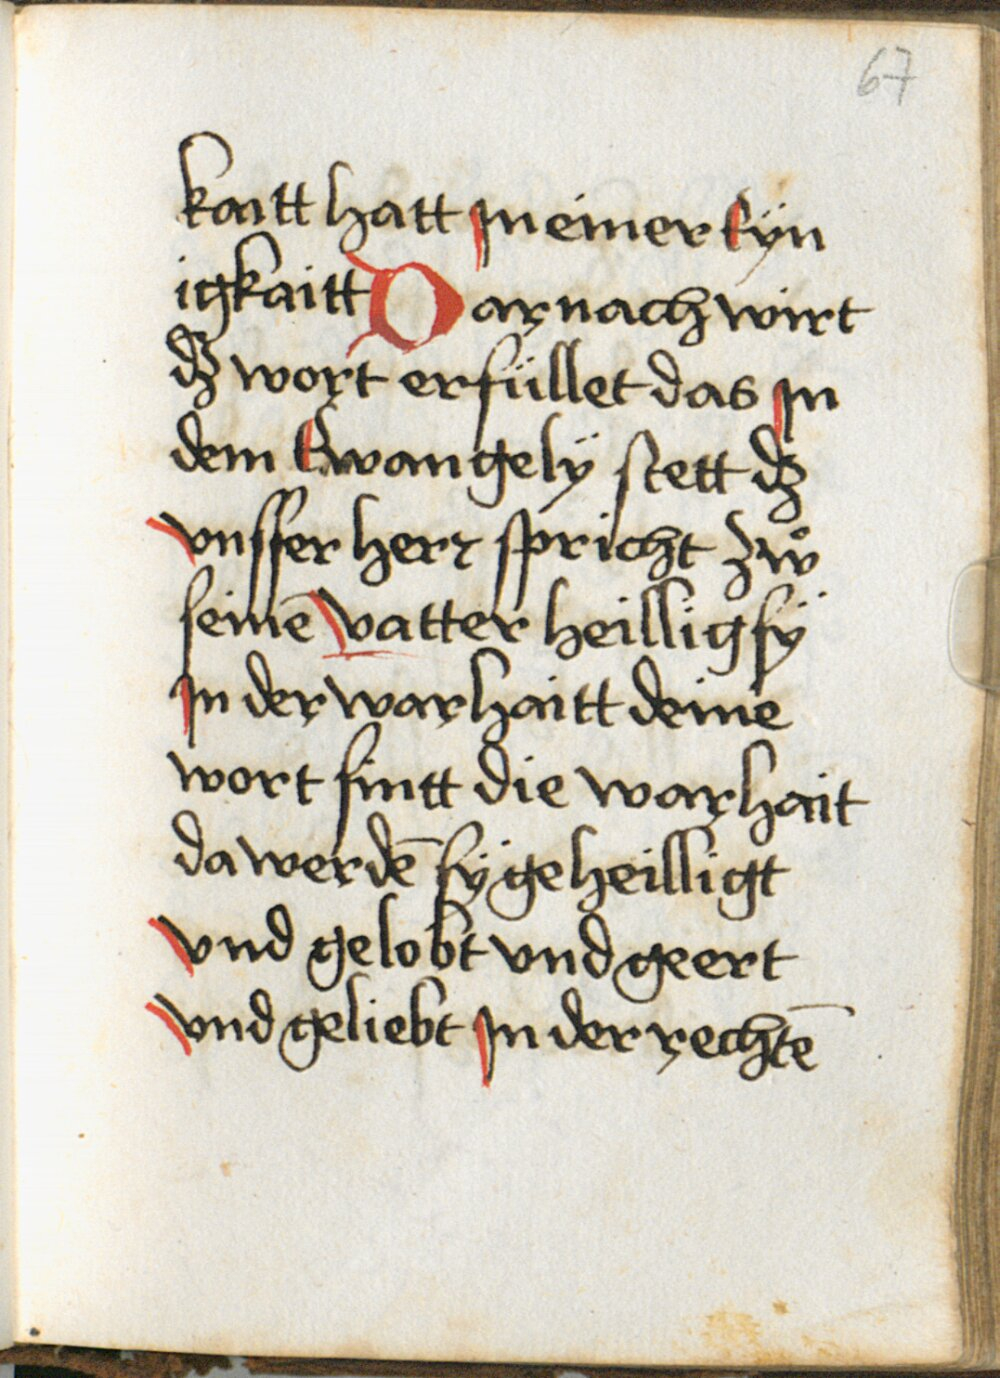 67
kaitt hatt In einer Eÿn
igkaitt Dar nach wirt
dz wort erfüllet das In
dem Ewangelÿ stett dz
vnsser herr spricht zwͦ
seinē vatter heillig sÿ
In der warhaitt deine
wort sintt die warhait
da werdē sÿ geheilligt
vnd gelobt vnd geert
vnd geliebt In der rechtē